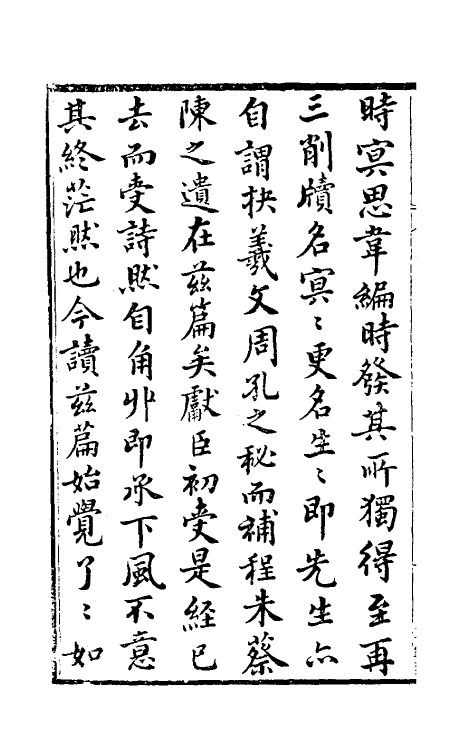 時㝠思韋編時發其所獨得至再
三削牘名㝠〻更名生〻即先生亦
自謂抉羲文周孔之秘而補程朱蔡
陳之遺在兹篇矣獻臣初受是經已
去而受詩然自角丱即承下風不意
其終茫然也今讀兹篇始覺了〻如